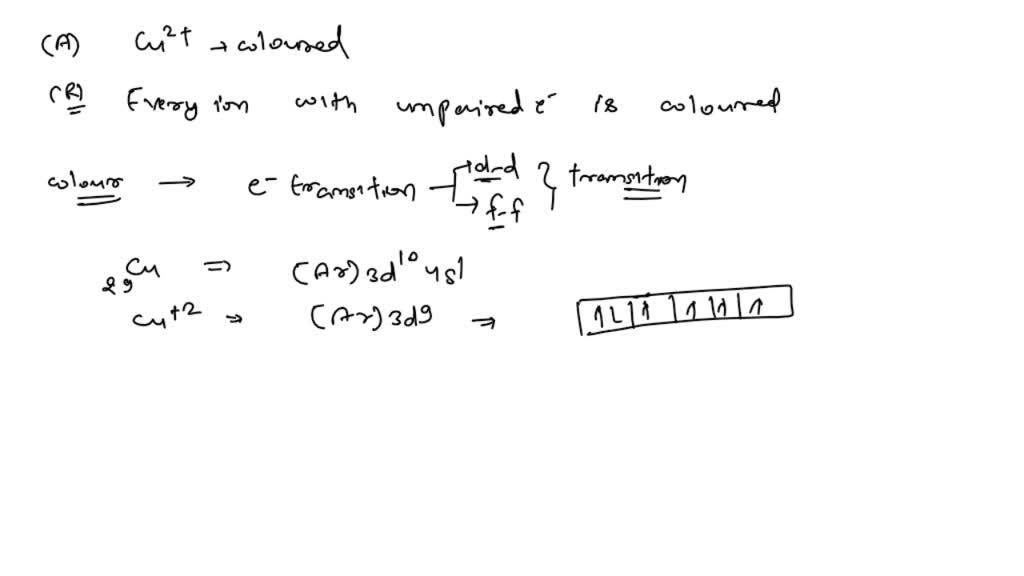 (A) Cu²⁺ → coloured
(R) Every ion with unpaired e⁻ is coloured
colour → e⁻ transition → d-d } transition
→ f-f
₂₉Cu ⇒ (Ar) 3d¹⁰ 4s¹
Cu⁺² → (Ar) 3d9 ⇒ 1L 1 1 1 1